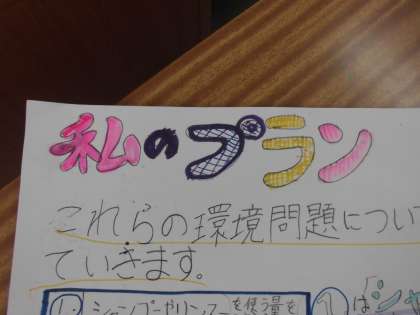 私のプラン
これらの環境問題につい
ていきます。
1. シャンプーやリンスーを使う量を
2 は